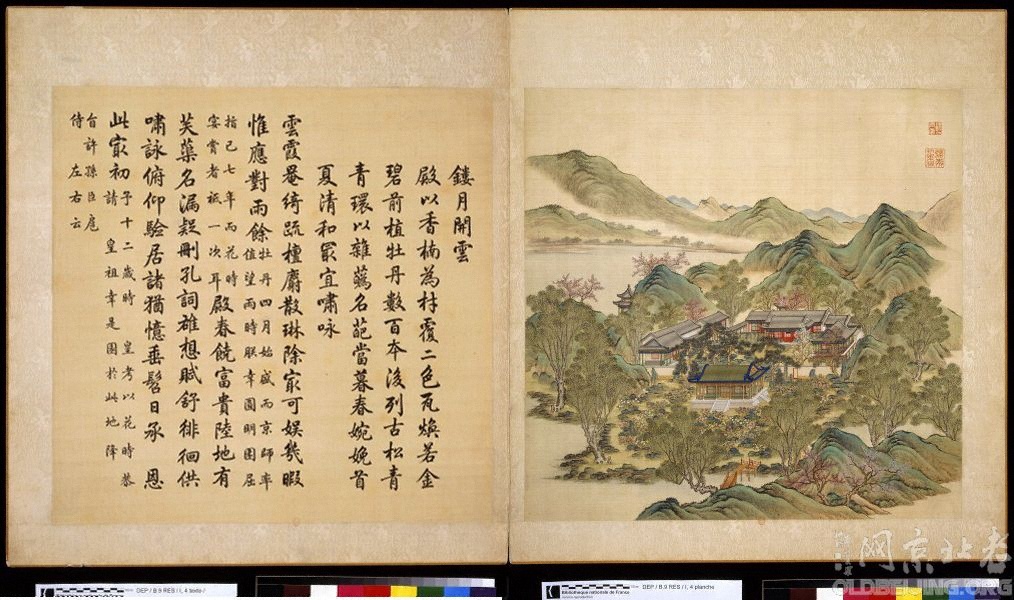 鏤月開雲
殿以香楠為材覆二色瓦煥若金
碧前植牡丹數百本後列古松青
青環以雜蘤名葩當暮春婉娩首
夏清和最宜嘯咏
雲霞罨綺疏檀麝散琳除最可娛幾暇
惟應對雨餘牡丹四月始盛而京師率值望雨時朕幸圓明園屈
指已七年而花時宴賞者祇一次耳殿春饒富貴陸地有
芙蕖名漏疑刪孔詞雄想賦舒徘徊供
嘯詠俯仰驗居諸猶憶垂髫日承 恩
此最初予十二歲時皇考以花時恭請皇祖幸是園於此地降
旨許孫臣扈侍左右云
DEP / B.9 RES / I, 4 texte /
DEP / B.9 RES / I, 4 planche
Bibliothèque nationale de France
老北京网
OLDBEIJING.ORG